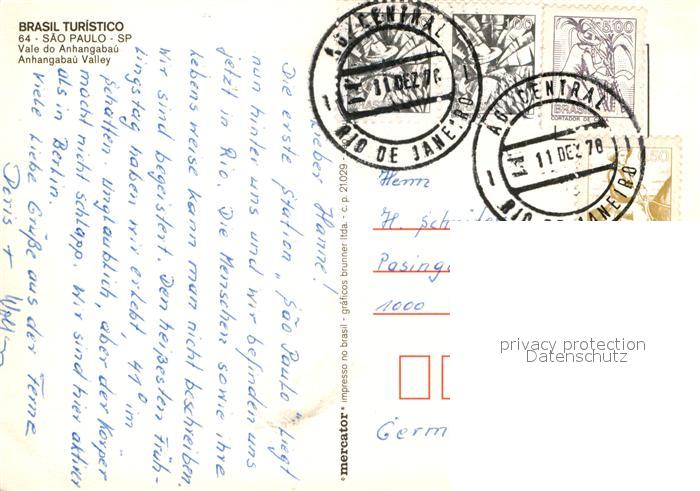 BRASIL TURÍSTICO
64 - SÃO PAULO - SP
Vale do Anhangabaú
Anhangabaú Valley
Lieber Hanne!
Die erste Station "São Paulo" liegt
nun hinter uns und wir befinden uns
jetzt in Rio. Die Menschen sowie ihre
Lebensweise kann man nicht beschreiben.
Wir sind begeistert. Den heißesten Früh-
lingstag haben wir erlebt, 41° im
Schatten. Unglaublich, aber der Körper
macht nicht schlapp. Wir sind hier aktiver
als in Berlin.
Viele liebe Grüße aus der Ferne
Doris +
mercator® impresso no brasil - gráficos brunner ltda. - c. p. 21.029 -
AG. CENTRAL
11 DEZ 78
RIO DE JANEIRO
AG. CENTRAL
11 DEZ 78
RIO DE JANEIRO
1,00
5,00
BRASIL
CORTADOR DE
,50
Herrn
H.
Pasing
1000
Germ
privacy protection
Datenschutz